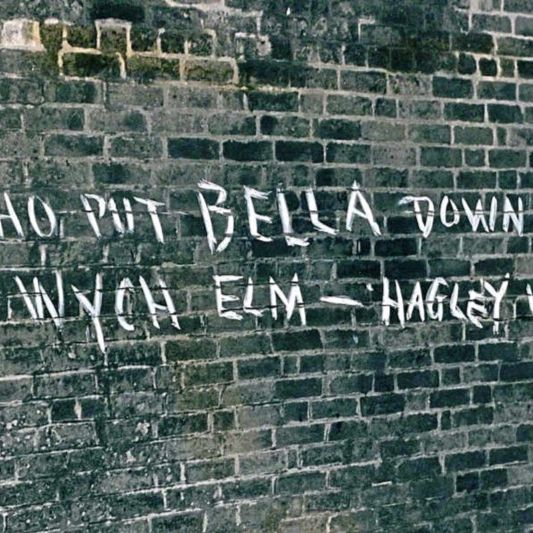 HO PUT BELLA DOWN
WYCH ELM – HAGLEY